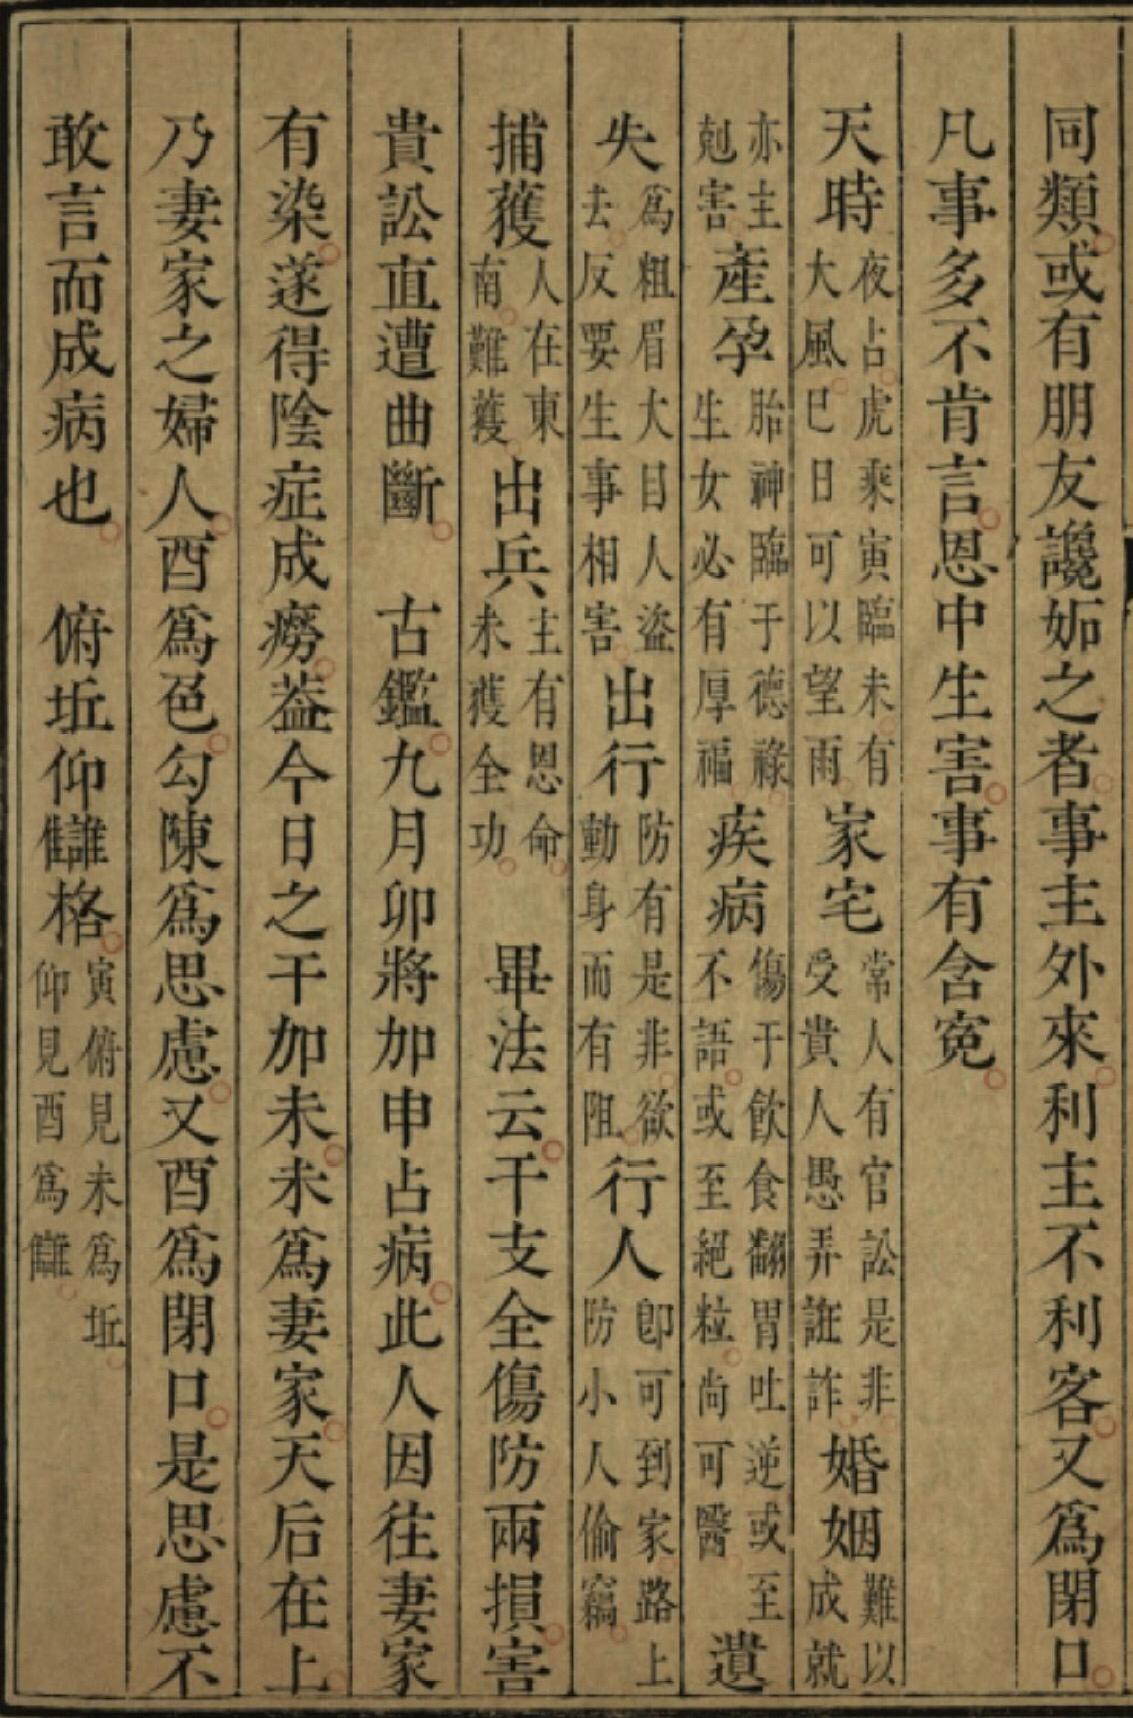 同類或有朋友讒妬之者事主外來利主不利客又爲閉口
凡事多不肯言恩中生害事有含寃
天時夜占虎乘寅臨未有大風巳日可以望雨家宅常人有官訟是非受貴人愚弄誑詐婚姻難以成就
亦主尅害產孕胎神臨于德祿生女必有厚福疾病傷于飲食翻胃吐逆或至不語或至絕粒尚可醫遺
失爲粗眉大目人盜去反要生事相害出行防有是非欲動身而有阻行人卽可到家路上防小人偷竊
捕獲人在東南難獲出兵主有恩命未獲全功　畢法云干支全傷防兩損害
貴訟直遭曲斷　古鑑九月卯將加申占病此人因往妻家
有染遂得陰症成癆葢今日之干加未未爲妻家天后在上
乃妻家之婦人酉爲色勾陳爲思慮又酉爲閉口是思慮不
敢言而成病也　俯坵仰讎格寅俯見未爲坵仰見酉爲讎